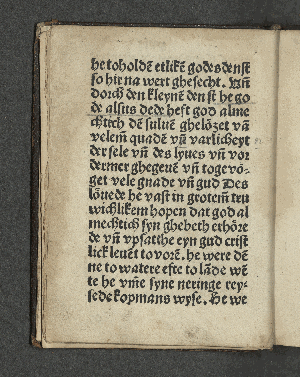 he toholdē etlikē godes denst
so hir na wert ghesecht. Uñ
dorch den kleynē denst he go
de alsus dede heft god alme
chtich dē suluē ghelözet vā
velem̄ quadē vñ varlicheyt
der sele vñ des lyues vñ vor
dermer ghegeuē vñ togevö-
get vele gnade vñ gud Des
löuede he vast in grotem̄ tru
wichlikem hopen dat god al
mechtich syn ghebeth erhöre
de vñ vpsatthe eyn gud crist
lick leuēt to vorē. he were dē
ne to watere efte to lāde wē
te he vm̄e syne neringe rey-
sede kopmans wyse. He we